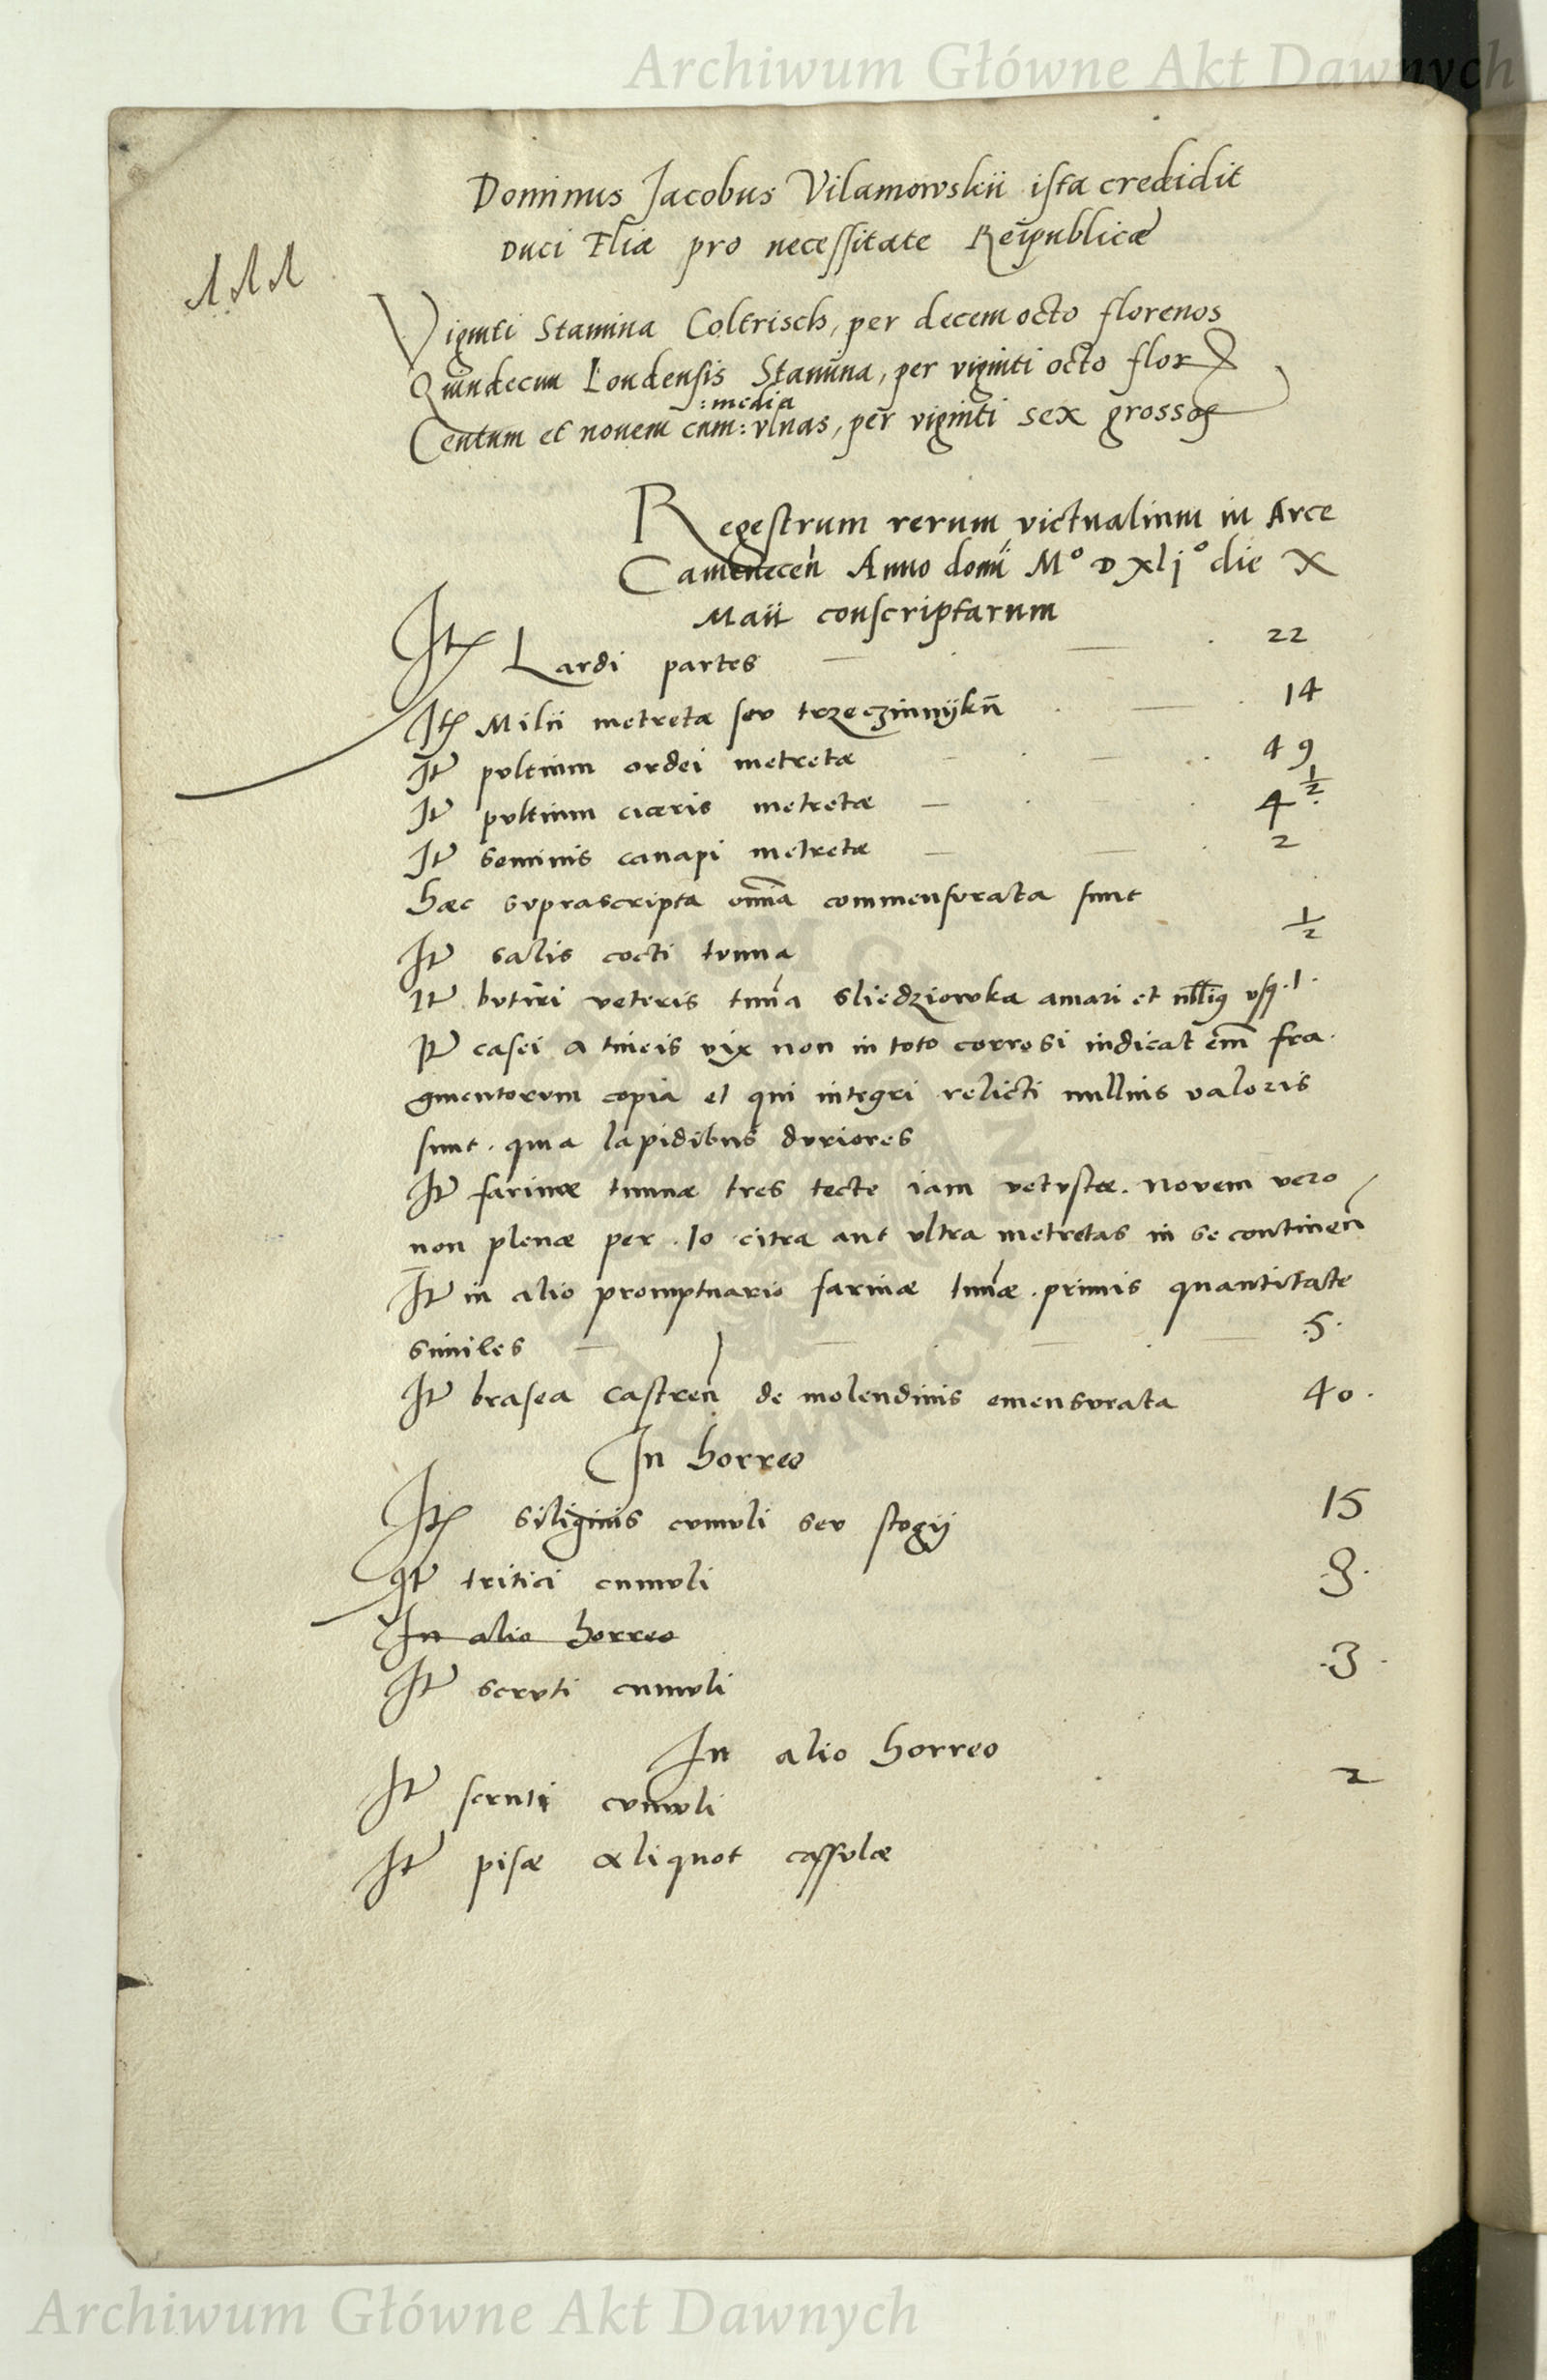 Archiwum Główne Akt Dawnych
Dominus Jacobus Vilamowskii ista credidit
Duci Eliæ pro necessitate Reipublicæ
Viginti Stamina Coltrisch, per decem octo florenos
Quindecim Londensis Stamina, per viginti octo flor
: media
Centum et novem cum : vlnas, per viginti sex grossos
Regestrum rerum victualium in Arce
Camenecen̄ Anno domi M° D xlj° die X
Maii conscriptarum
Itē Lardi partes 22
Itē Milii metretæ sev trzeczinnijkn̄ 14
It pvltium ordei metretæ 49
It pvltium ciceris metretæ 4 1/2
It seminis canapi metretæ 2
hæc svprascripta om̄a commensvrata sunt
It salis cocti tvnna 1/2
It bvtiri veteris tun̄a sliedziowka amari et vsq . 1 .
It casei a tineis vix non in toto corrosi indicat em̄ fra
gmentorvm copia et qui integri relicti nullius valoris
sunt . quia lapidibus dvriores
It farinæ tunnæ tres tecte iam vetvstæ . novem vero
non plenæ per . 10 citra aut vltra metretas in se continen̄
It in alio promptuario farinæ tun̄æ . primis quantitate
similes . 5 .
It brasea Castren̄ de molendinis emensvrata 40 .
In horreo
Itē siliginis cvmvli sev stogij 15
It tritici cumvli . 8 .
In alio horreo
It scrvti cumvli . 3 .
In alio horreo
It scruti cvmvli 2
It pisæ aliquot cassvlæ
Archiwum Główne Akt Dawnych